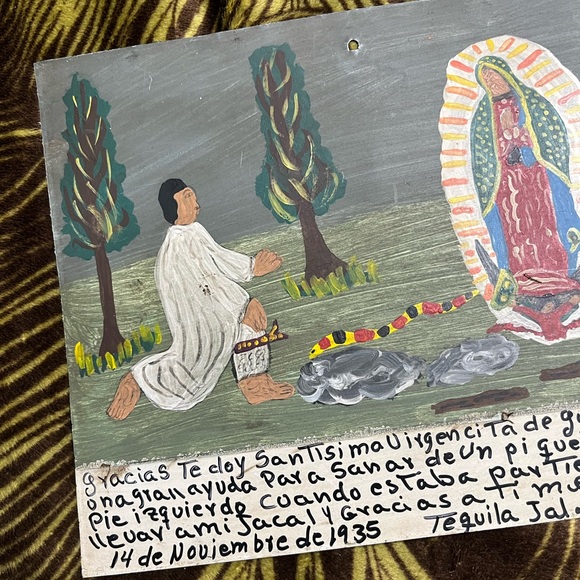 gracias Te doy Santisima Uirgencita de g
ona gran ayuda Para Sanar de Un pique
Pie izquierdo Cuando estaba partie
lleuar a mi Jacal y Gracias a Ti m
14 de Noviembre de 1935 Tequila Jal.